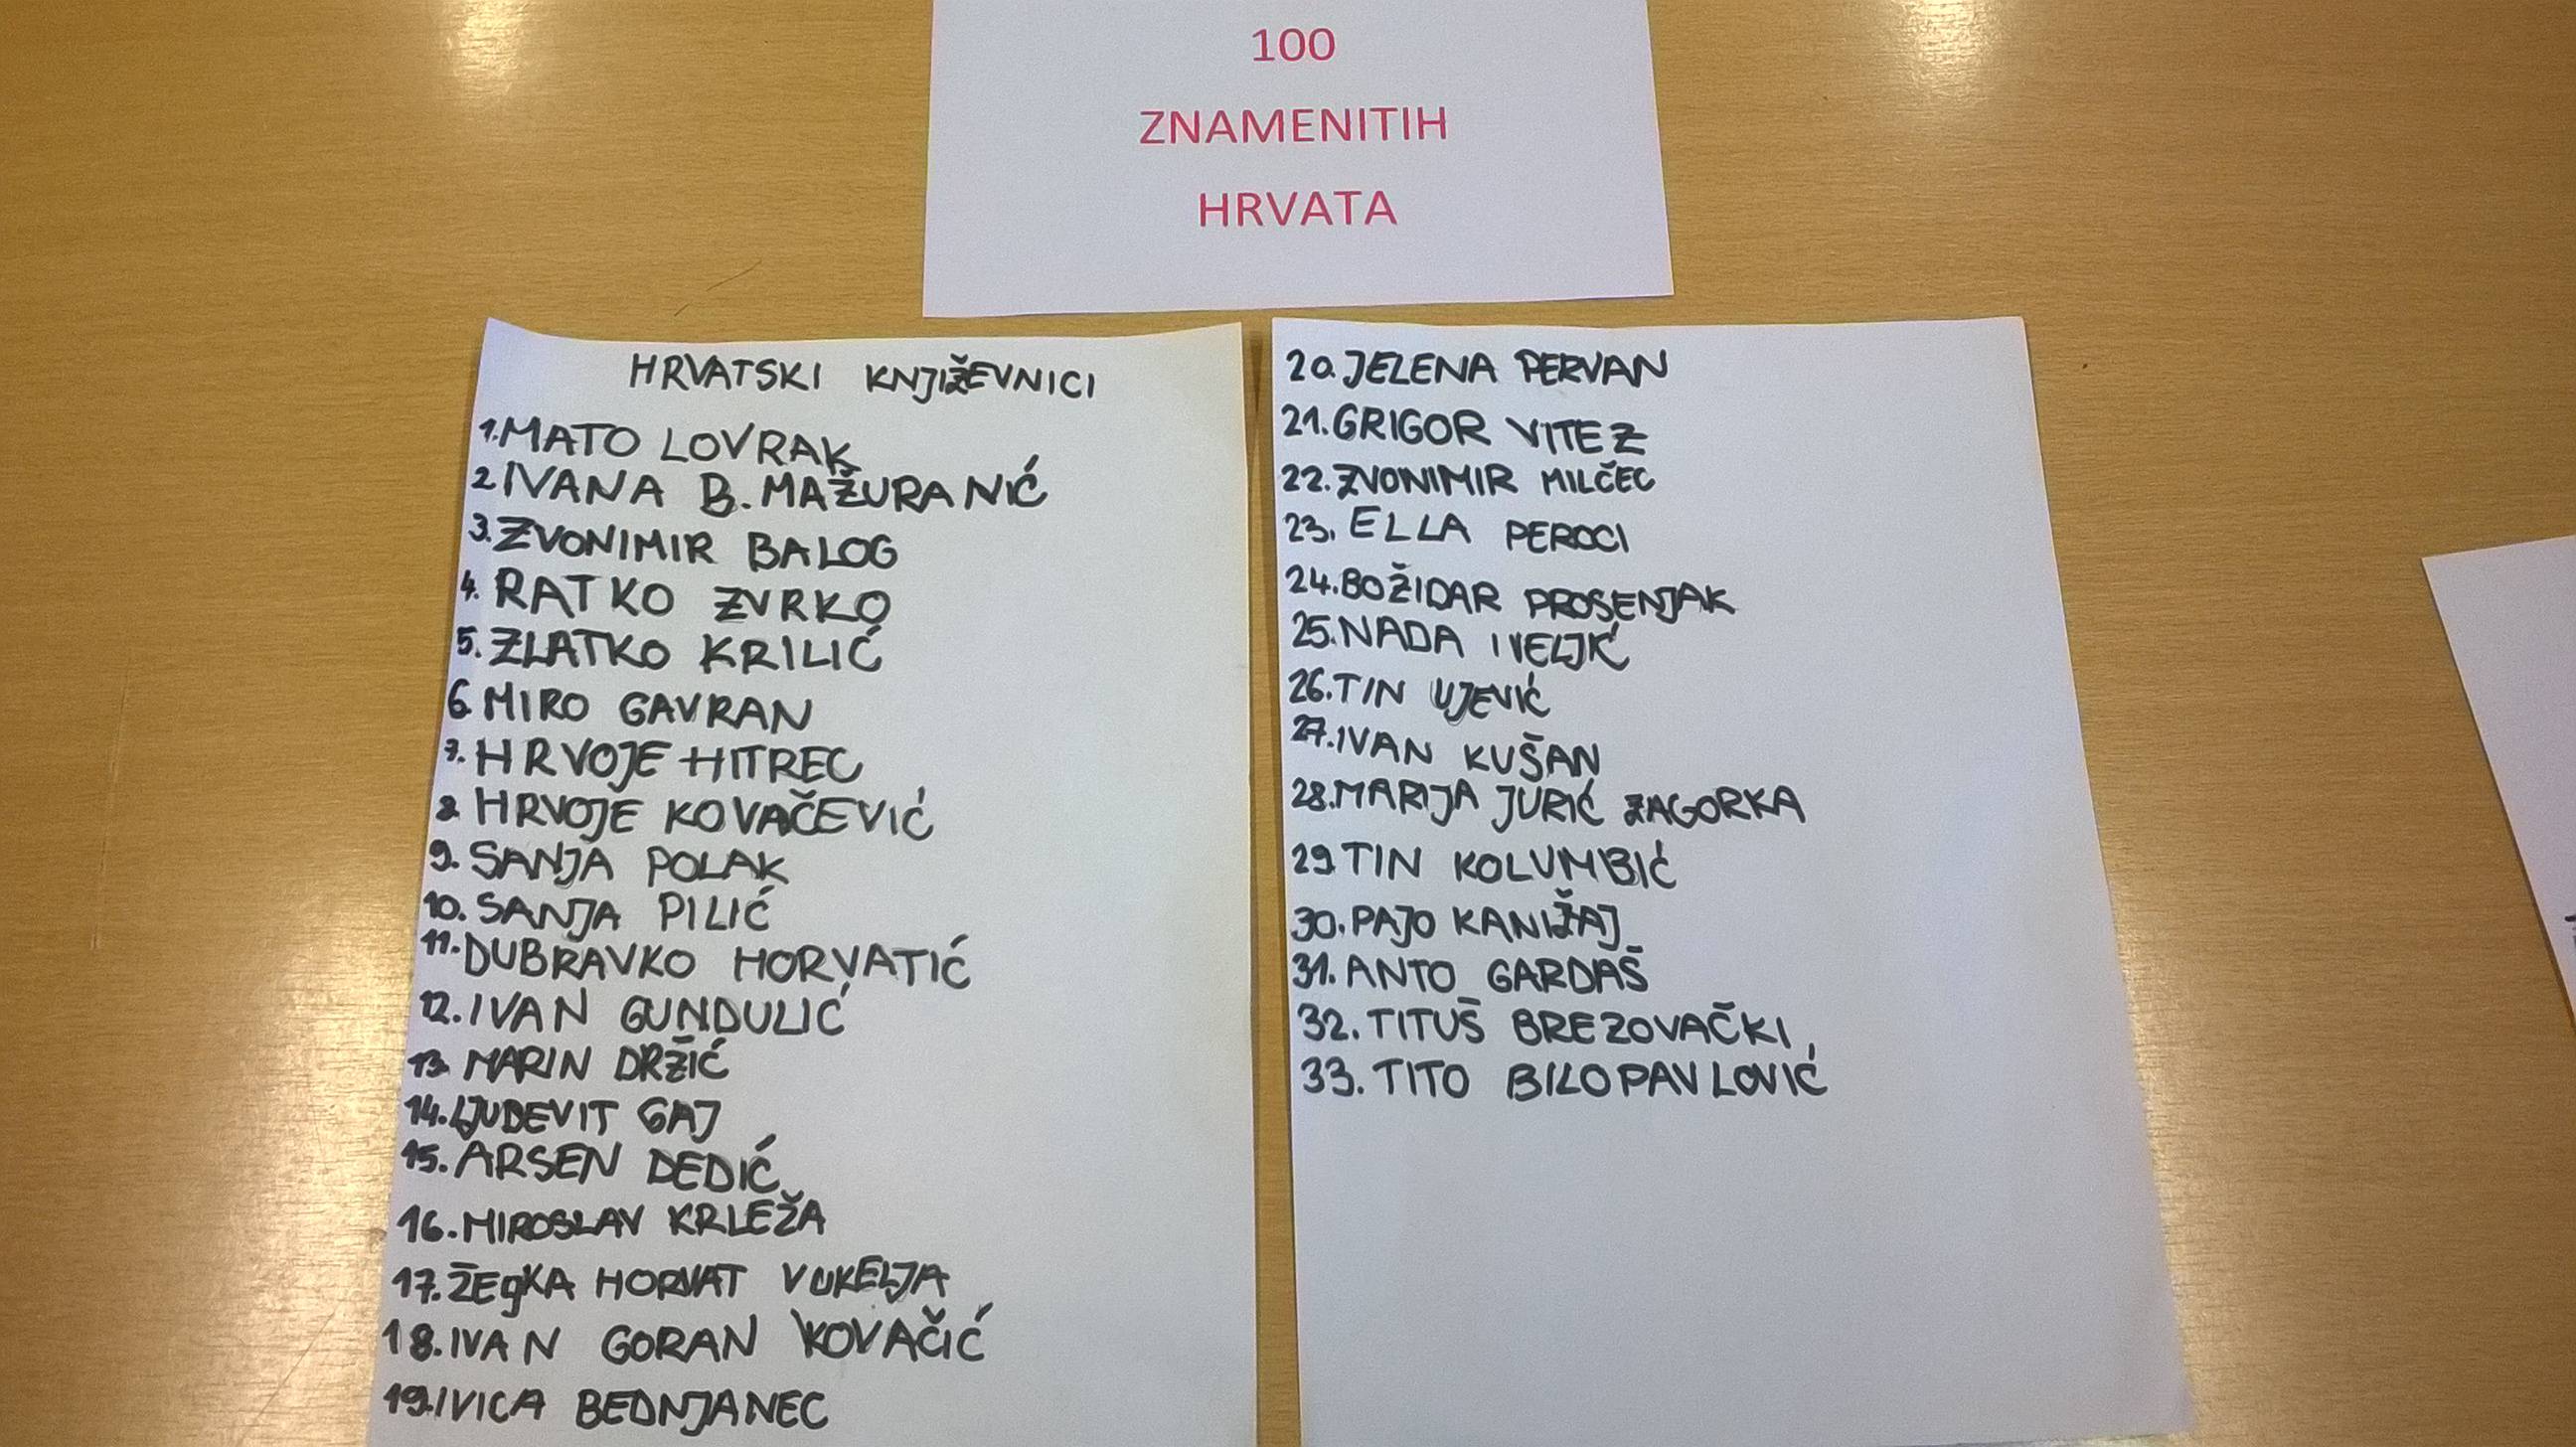 100
ZNAMENITIH
HRVATA
HRVATSKI KNJIŽEVNICI
1. MATO LOVRAK
2 IVANA B. MAŽURANIĆ
3. ZVONIMIR BALOG
4. RATKO ZVRKO
5. ZLATKO KRILIĆ
6. MIRO GAVRAN
7. HRVOJE HITREC
8. HRVOJE KOVAČEVIĆ
9. SANJA POLAK
10. SANJA PILIĆ
11. DUBRAVKO HORVATIĆ
12. IVAN GUNDULIĆ
13. MARIN DRŽIĆ
14. LJUDEVIT GAJ
15. ARSEN DEDIĆ
16. MIROSLAV KRLEŽA
17. ŽELJKA HORVAT VUKELJA
18. IVAN GORAN KOVAČIĆ
19. IVICA BEDNJANEC
20. JELENA PERVAN
21. GRIGOR VITEZ
22. ZVONIMIR MILČEC
23. ELLA PEROCI
24. BOŽIDAR PROSENJAK
25. NADA IVELJIĆ
26. TIN UJEVIĆ
27. IVAN KUŠAN
28. MARIJA JURIĆ ZAGORKA
29. TIN KOLUMBIĆ
30. PAJO KANIŽAJ
31. ANTO GARDAŠ
32. TITUŠ BREZOVAČKI
33. TITO BILOPAVLOVIĆ